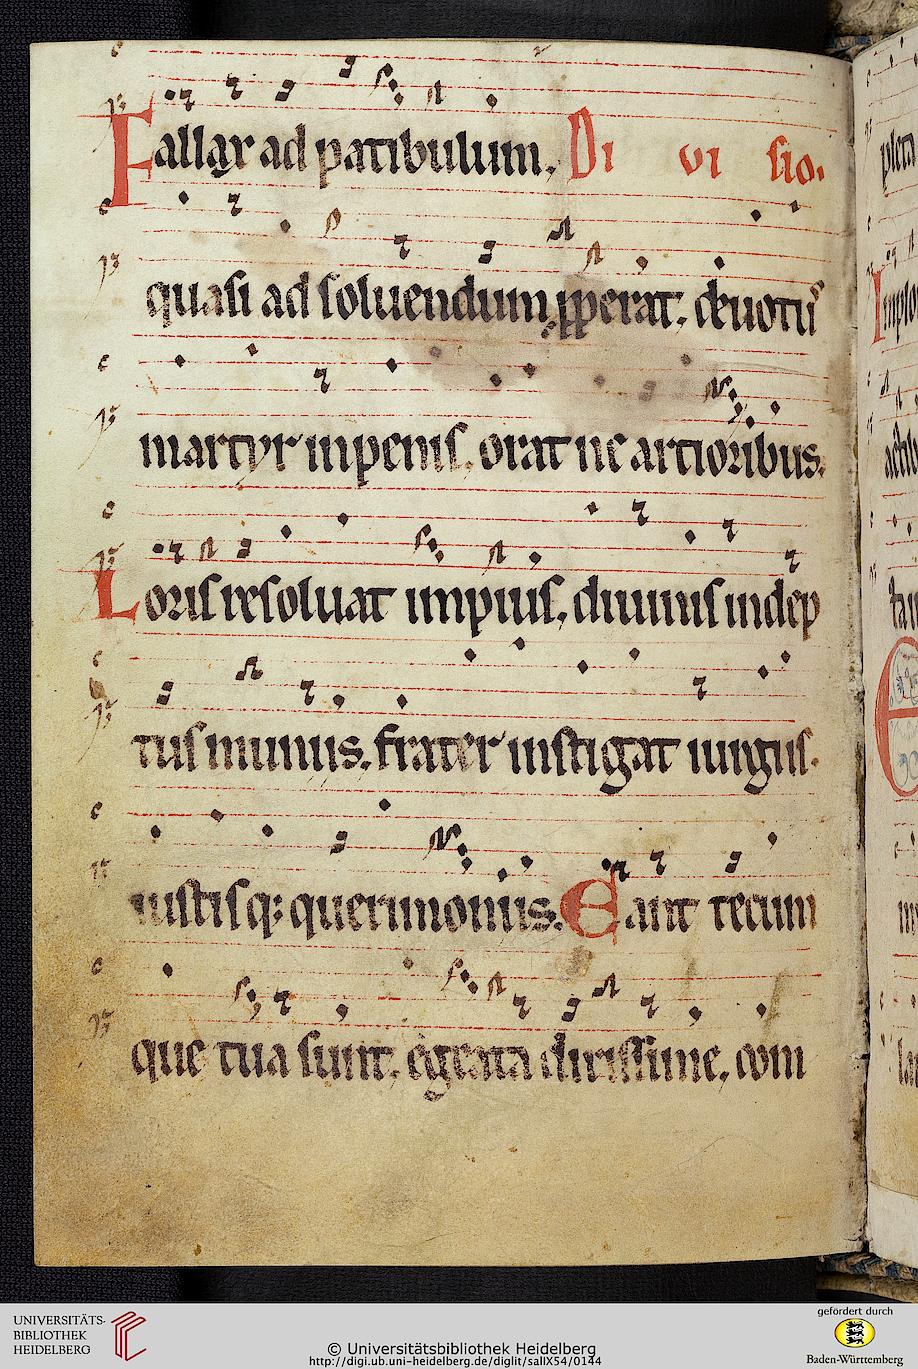 Fallax ad patibulum. Di vi sio.
quasi ad soluendum pperat. deuotu
martyr in penis. orat ne artioribus.
Loris resoluat impius. diuinis indep
tus munus. frater instigat iurgiis.
iustisq; querimoniis. Eant tecum
que tua sunt. egeata dirissime. com
UNIVERSITÄTS-
BIBLIOTHEK
HEIDELBERG
© Universitätsbibliothek Heidelberg
http://digi.ub.uni-heidelberg.de/diglit/salIX54/0144
gefördert durch
Baden-Württemberg